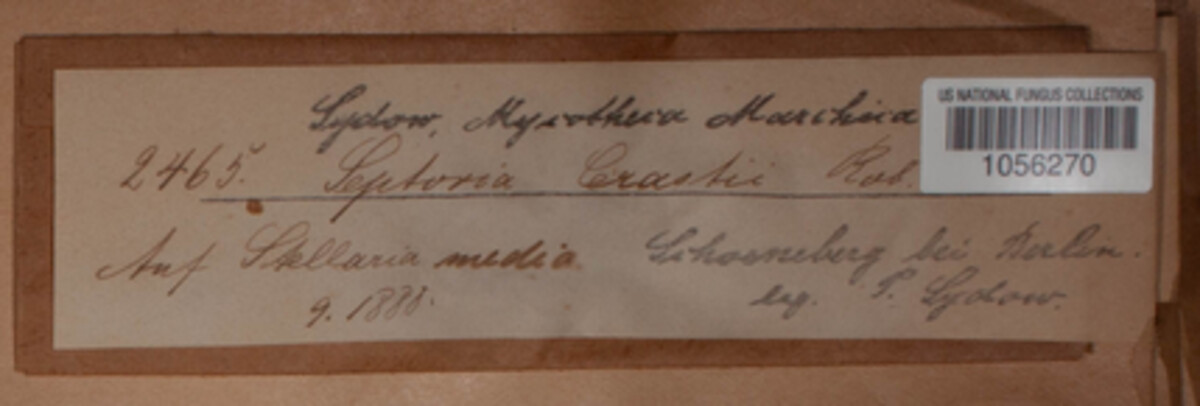 Sydow, Mycotheca Marchica
US NATIONAL FUNGUS COLLECTIONS
1056270
2465. Septoria Crastii Rob.
Auf Stellaria media
Schoeneberg bei Berlin.
9. 1888.
leg. P. Sydow.